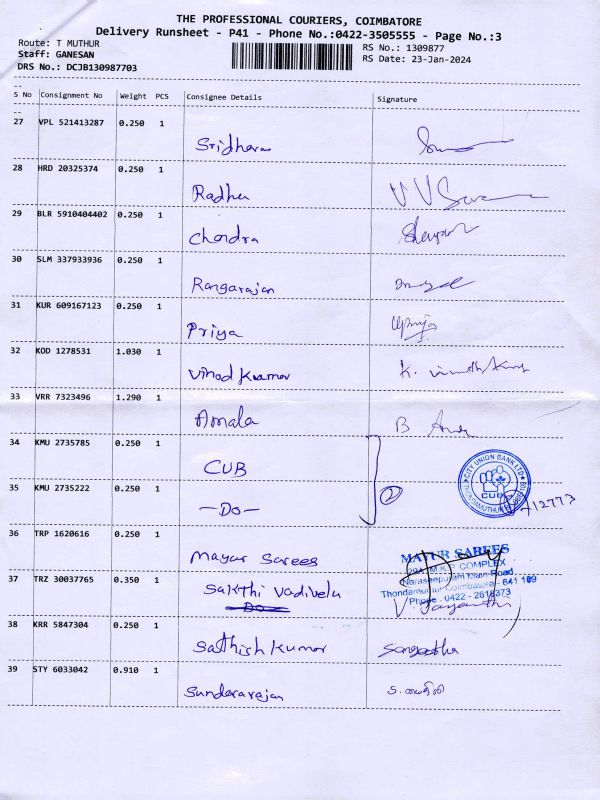 THE PROFESSIONAL COURIERS, COIMBATORE
Delivery Runsheet - P41 - Phone No.:0422-3505555 - Page No.:3
Route: T MUTHUR
RS No.: 1309877
Staff: GANESAN
RS Date: 23-Jan-2024
DRS No.: DCJB130987703
S No Consignment No Weight PCS Consignee Details Signature
27 VPL 521413287 0.250 1
Sridharan
28 HRD 20325374 0.250 1
Radha
29 BLR 5910404402 0.250 1
Chandra
30 SLM 337933936 0.250 1
Rangarajan
31 KUR 609167123 0.250 1
Priya
32 KOD 1278531 1.030 1
Vinod Kumar K.
33 VRR 7323496 1.290 1
Amala B
34 KMU 2735785 0.250 1
CUB
CITY UNION BANK LTD
CUB
35 KMU 2735222 0.250 1
2
-Do-
36 TRP 1620616 0.250 1
Mayur Sarees
MAYUR SAREES
COMPLEX
Naraseepuram Main Road
37 TRZ 30037765 0.350 1
Sakthi Vadivelu
Coimbatore - 641 109
Phone : 0422 - 2618373
V. Jayanthi
38 KRR 5847304 0.250 1
Sathish Kumar Sangeetha
39 STY 6033042 0.910 1
Sundararajan